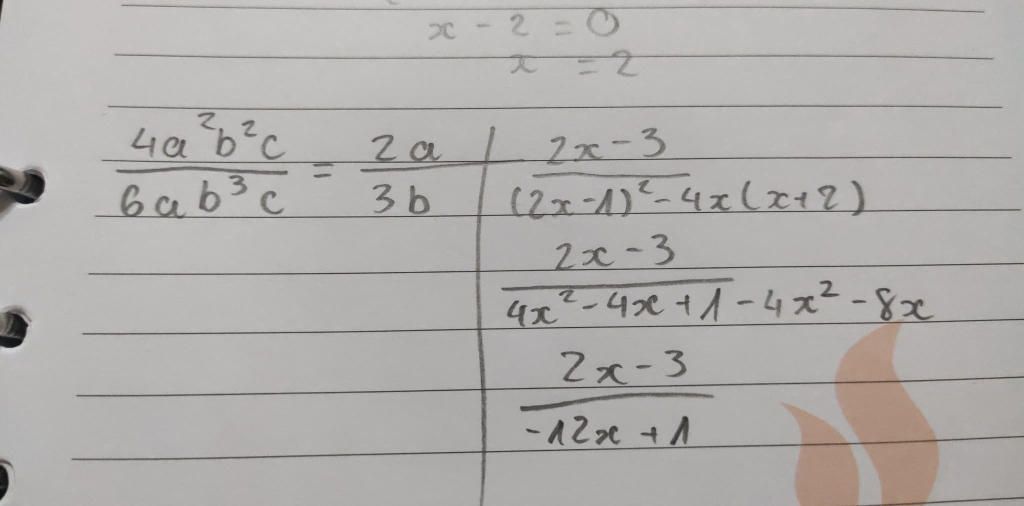 x - 2 = 0
x = 2
4a²b²c / 6ab³c = 2a / 3b
2x - 3 / (2x-1)² - 4x(x+2)
2x - 3 / 4x² - 4x + 1 - 4x² - 8x
2x - 3 / -12x + 1